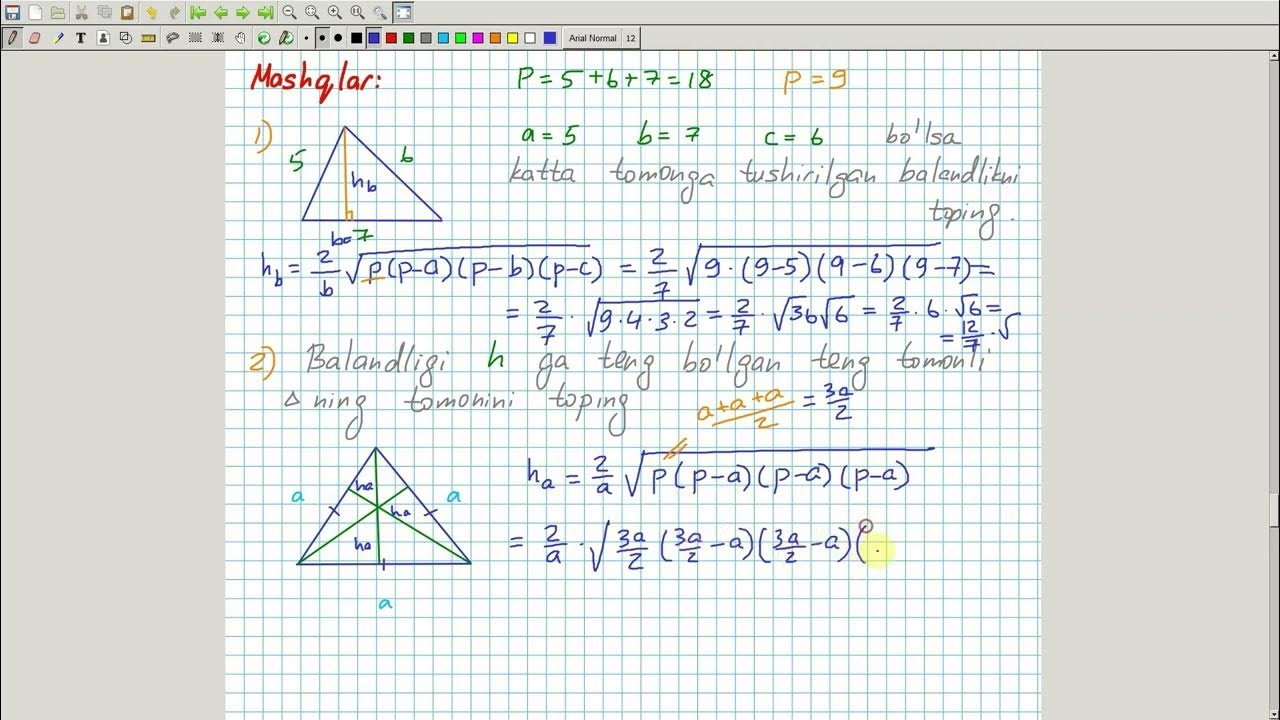 Arial Normal 12
Mashqlar: P = 5 + 6 + 7 = 18 p = 9
1) a = 5 b = 7 c = 6 bo'lsa
5 b h_b b = 7
katta tomonga tushirilgan balandlikni
toping.
h_b = 2/b √p(p-a)(p-b)(p-c) = 2/7 √9·(9-5)(9-6)(9-7) =
= 2/7 · √9·4·3·2 = 2/7 · √36√6 = 2/7 · 6 · √6 =
= 12/7 · √
2) Balandligi h ga teng bo'lgan teng tomonli
△ ning tomonini toping
a+a+a/2 = 3a/2
a a ha ha ha a
h_a = 2/a √p(p-a)(p-a)(p-a)
= 2/a · √3a/2 (3a/2 - a)(3a/2 - a)(